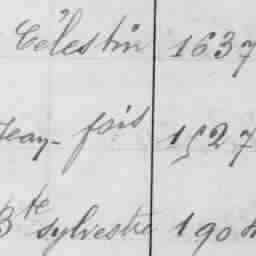 Célestin 1637
Jean-fois 1527
Bte sylvestre 1904